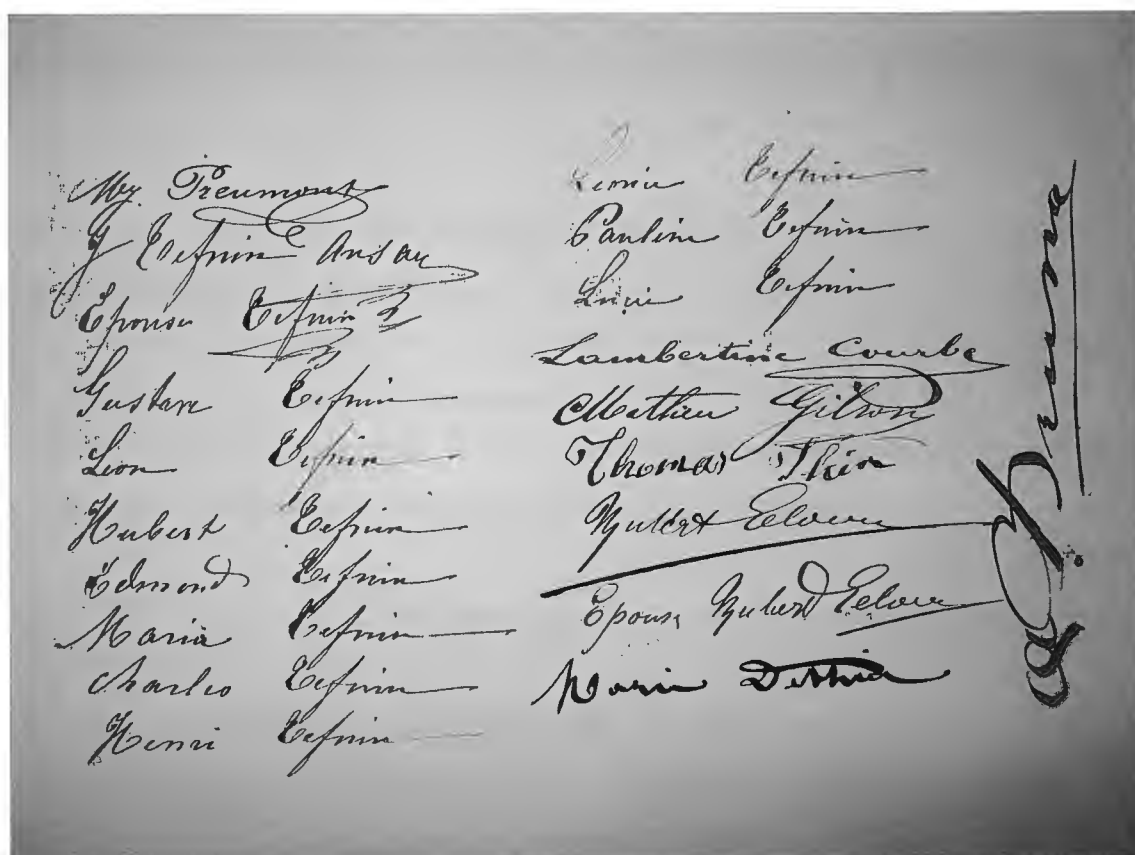 My Preumont
J Tefnin Ansay
Epouse Tefnin
Gustave Tefnin
Léon Tefnin
Hubert Tefnin
Edmond Tefnin
Maria Tefnin
Charles Tefnin
Henri Tefnin
Léonie Tefnin
Pauline Tefnin
Lucie Tefnin
Lambertine Courbe
Mathieu Gilson
Thomas Thion
Hubert
Epouse Hubert
Marie Dethier